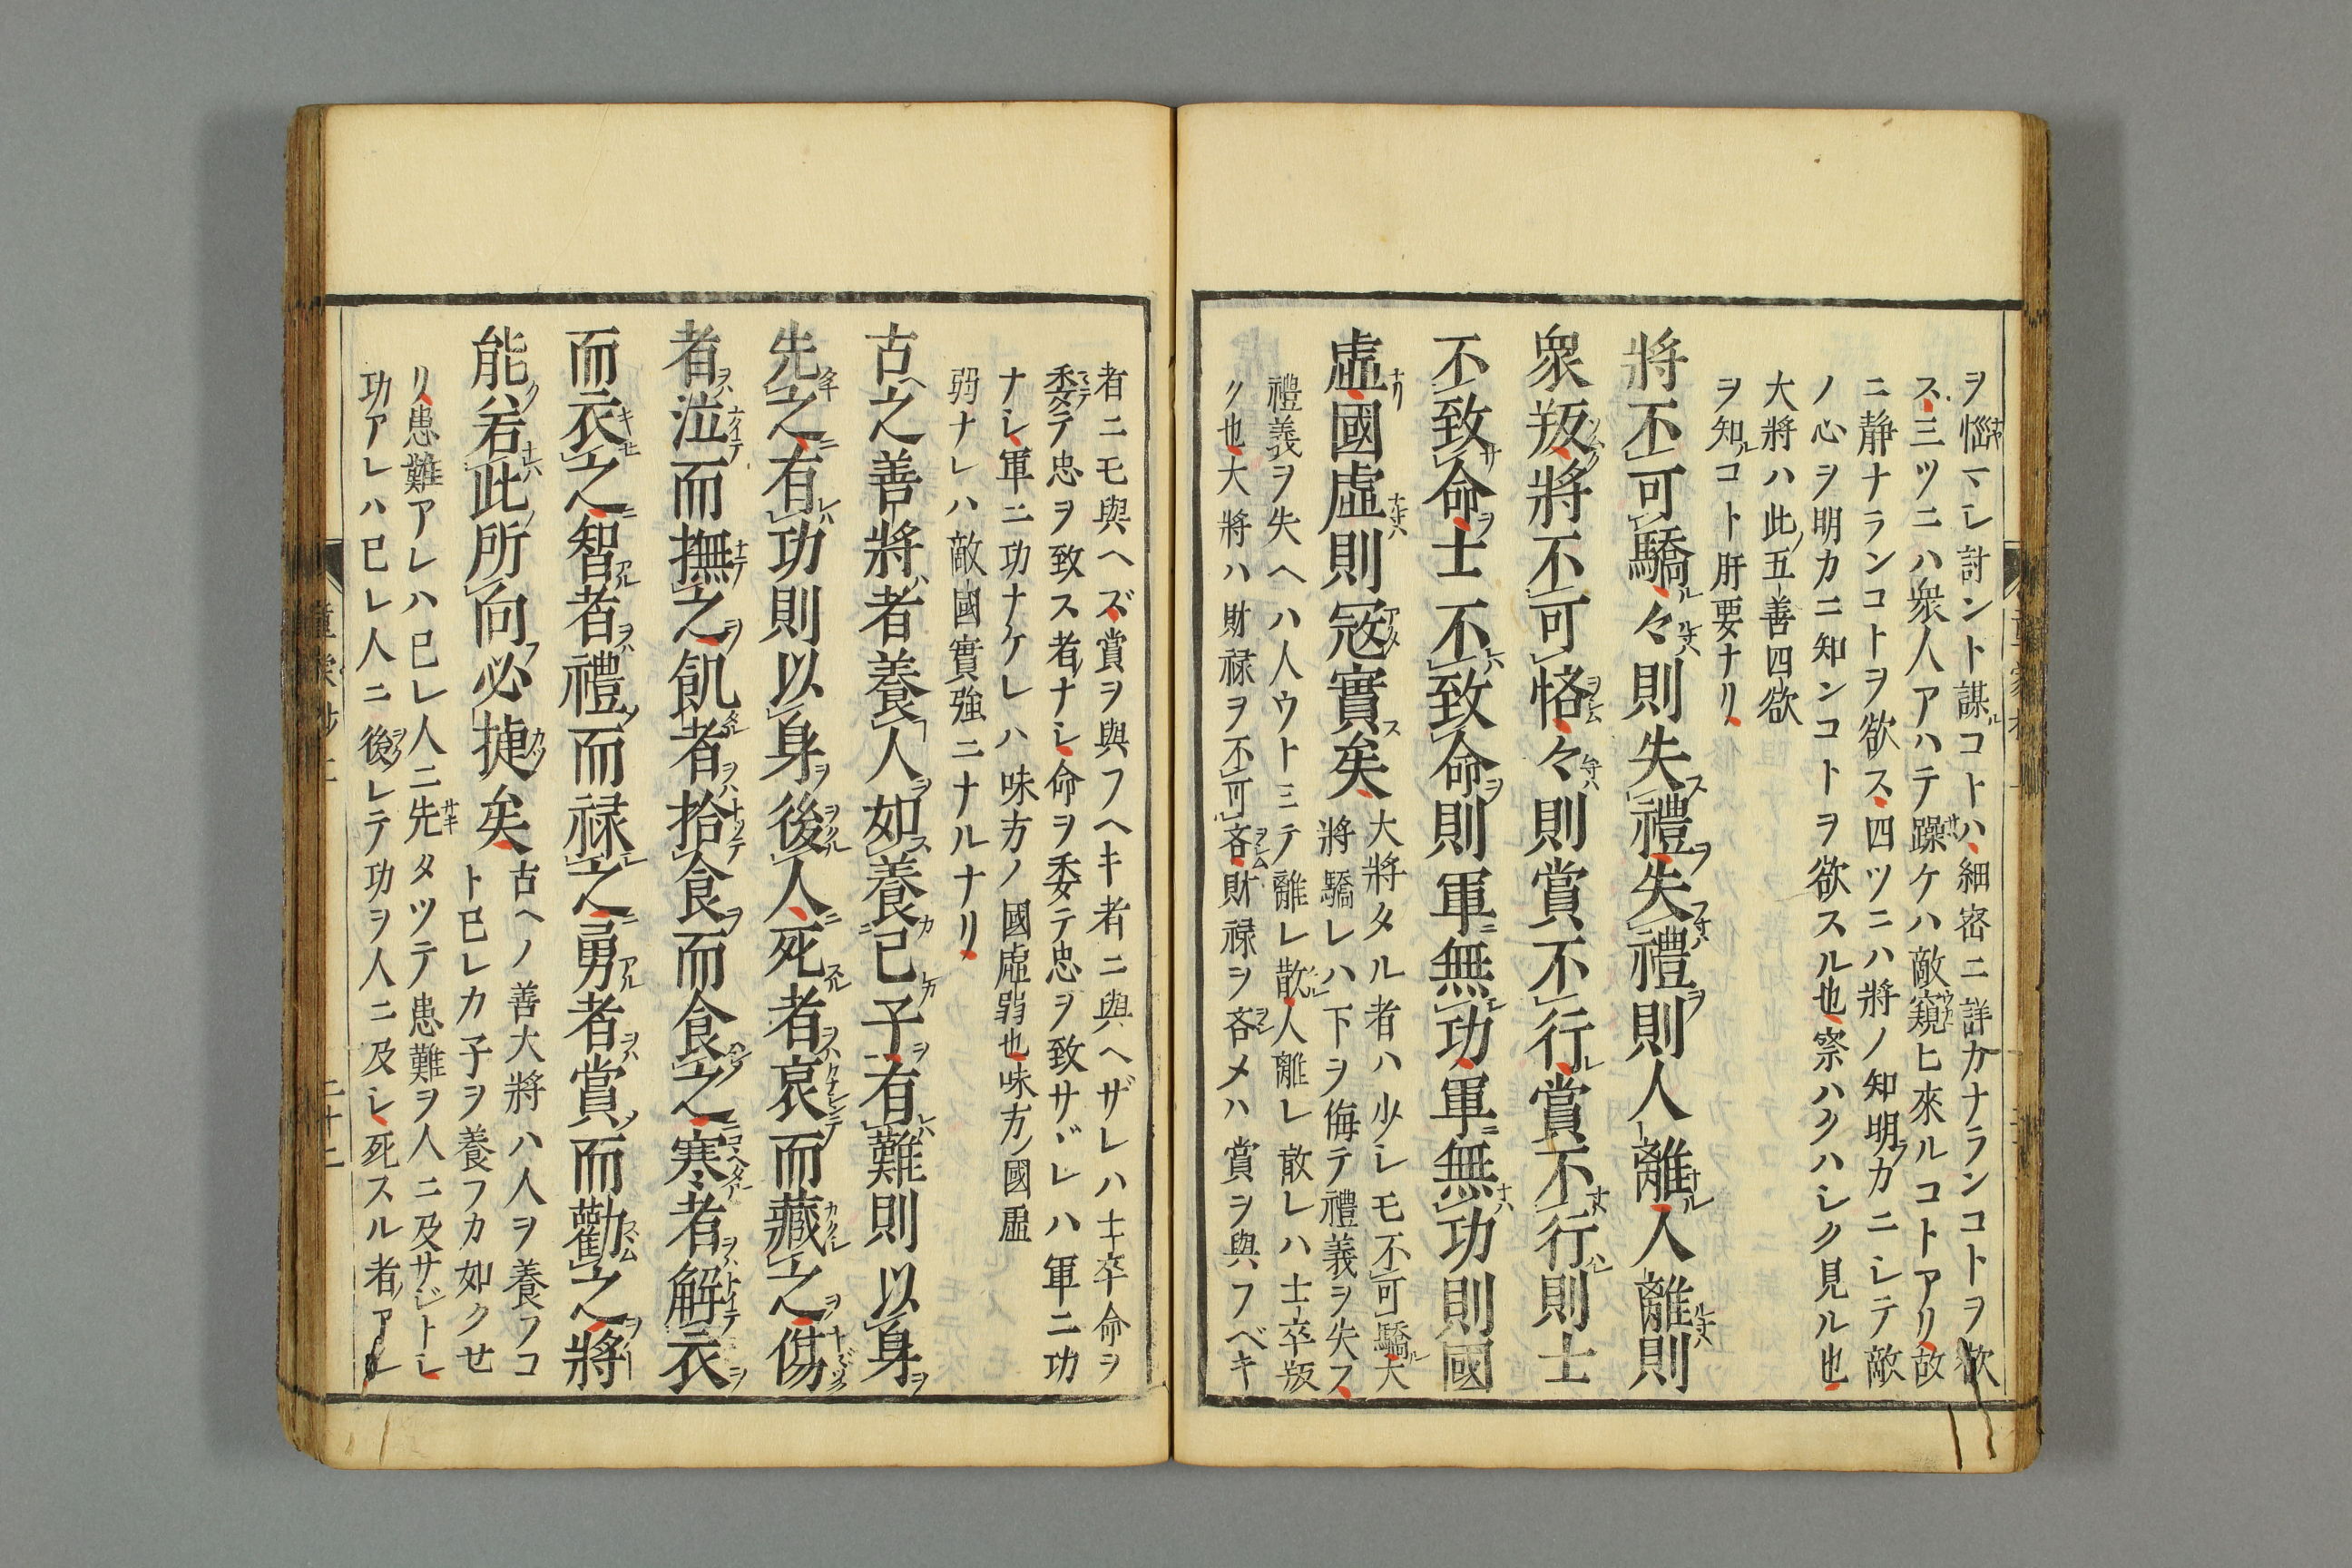 ヲ惱マシ討ント謀ルコトハ細密ニ詳カナランコトヲ欲
ス三ツニハ衆人アハテ躁ケハ敵窺ヒ來ルコトアリ故
ニ靜ナランコトヲ欲ス四ツニハ將ノ知明カニシテ敵
ノ心ヲ明カニ知ンコトヲ欲スル也察ハクハシク見ル也
大將ハ此五善四欲
ヲ知ルコト肝要ナリ
將不可驕々則失禮失禮則人離人離則
衆叛將不可恪々則賞不行賞不行則士
不致命士不致命則軍無功軍無功則國
虛國虛則寇實矣
大將タル者ハ少シモ不可驕大
將驕レハ下ヲ侮テ禮義ヲ失フ
禮義ヲ失ヘハ人ウトミテ離レ散人離レ散レハ士卒叛
ク也大將ハ財禄ヲ不可吝財禄ヲ吝メハ賞ヲ與フベキ
者ニモ與ヘズ賞ヲ與フヘキ者ニ與ヘザレハ士卒命ヲ
委テ忠ヲ致ス者ナシ命ヲ委テ忠ヲ致サヾレハ軍ニ功
ナシ軍ニ功ナケレハ味方ノ國虛弱也味方ノ國虛
弱ナレハ敵國實強ニナルナリ
古之善將者養人如養己子有難則以身
先之有功則以身後人死者哀而藏之傷
者泣而撫之飢者拾食而食之寒者解衣
而衣之智者禮而禄之勇者賞而勸之將
能若此所向必捷矣
古ヘノ善大將ハ人ヲ養フコ
ト已レカ子ヲ養フカ如クせ
リ患難アレハ已レ人ニ先タツテ患難ヲ人ニ及サジトシ
功アレハ已レ人ニ後レテ功ヲ人ニ及シ死スル者アレ
二十二